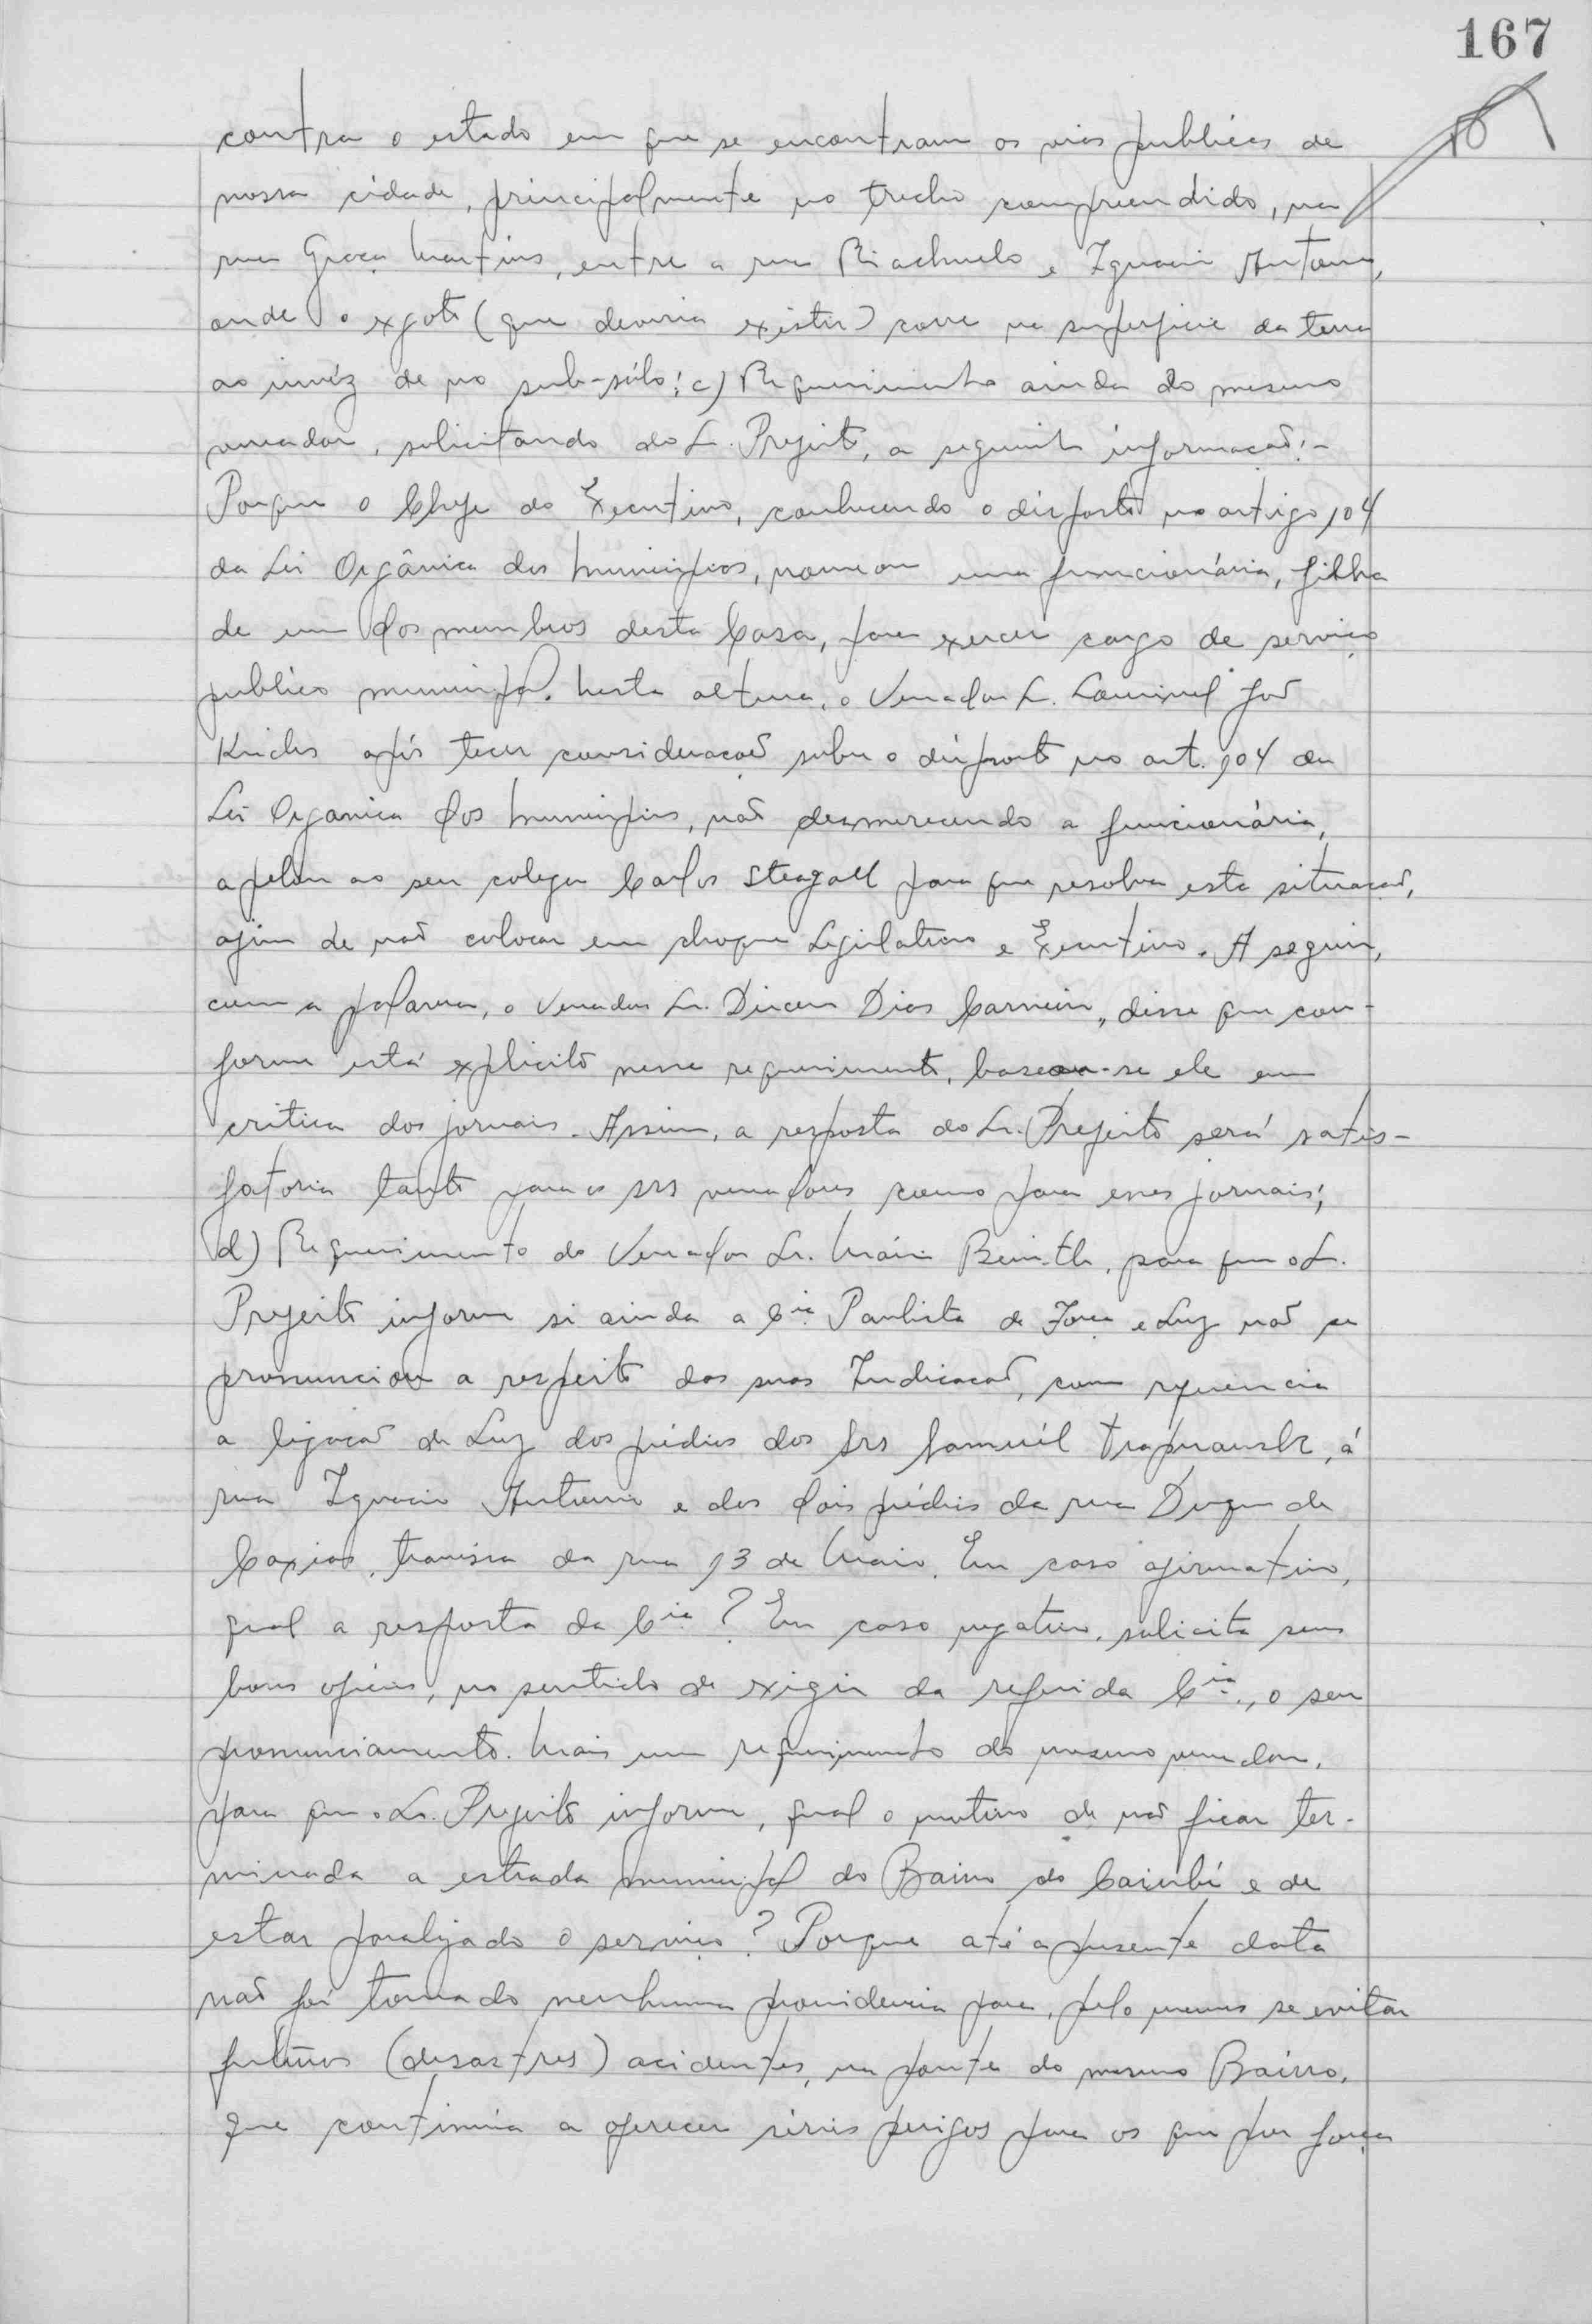 167
contra o estado em que se encontram as vias publicas de
nossa cidade, principalmente no trecho compreendido, na
rua Graça Martins, entre a rua Riachuelo e Ignacio Antonio,
onde o exgoto (que deveria existir) corre na superficie da terra
ao invéz de no sub-sólo; c) Requerimento ainda do mesmo
vereador, solicitando do Sr. Prefeito, a seguinte informação:-
Porque o Chefe do Executivo, conhecendo o disposto no artigo 104
da Lei Orgânica dos Municipios, nomeou uma funcionária, filha
de um dos membros desta Casa, para exercer cargo de serviço
publico municipal. Nesta altura, o Vereador Sr. Lourival José
após tecer consideração sobre o disposto no art. 104 da
Lei Organica dos Municipios, não desmerecendo a funcionária,
apelou ao seu colega Carlos Steagall para que resolva esta situação,
afim de não colocar em choque Legislativo e Executivo. A seguir,
com a palavra, o Vereador Sr. Dirceu Dias Carneiro, disse que con-
forme está explicito nesse requerimento, baseou-se ele em
critica dos jornais. Assim, a resposta do Sr. Prefeito será satis-
fatoria tanto para os srs vereadores como para esses jornais;
d) Requerimento do Vereador Sr. Mário para que o Sr.
Prefeito informe si ainda a Cia. Paulista de Força e Luz não se
pronunciou a respeito das suas Indicação, com referencia
a ligação de Luz dos prédios dos Srs Samuél á
rua Ignacio Antonio e dos dois prédios da rua Duque de
Caxias, travessa da rua 13 de Maio. Em caso afirmativo,
qual a resposta da Cia.? Em caso negativo, solicita seus
bons oficios, no sentido de exigir da referida Cia., o seu
pronunciamento. Mais um requerimento do mesmo vereador,
para que o Sr. Prefeito informe, qual o motivo de não ficar ter-
minada a estrada municipal do Bairro do Caiubí e de
estar paralizado o serviço? Porque até a presente data
não foi tomado nenhuma providencia para, pelo menos se evitar
futuros (desastres) acidentes, na ponte do mesmo Bairro,
que continúa a oferecer sérios perigos para os que por força